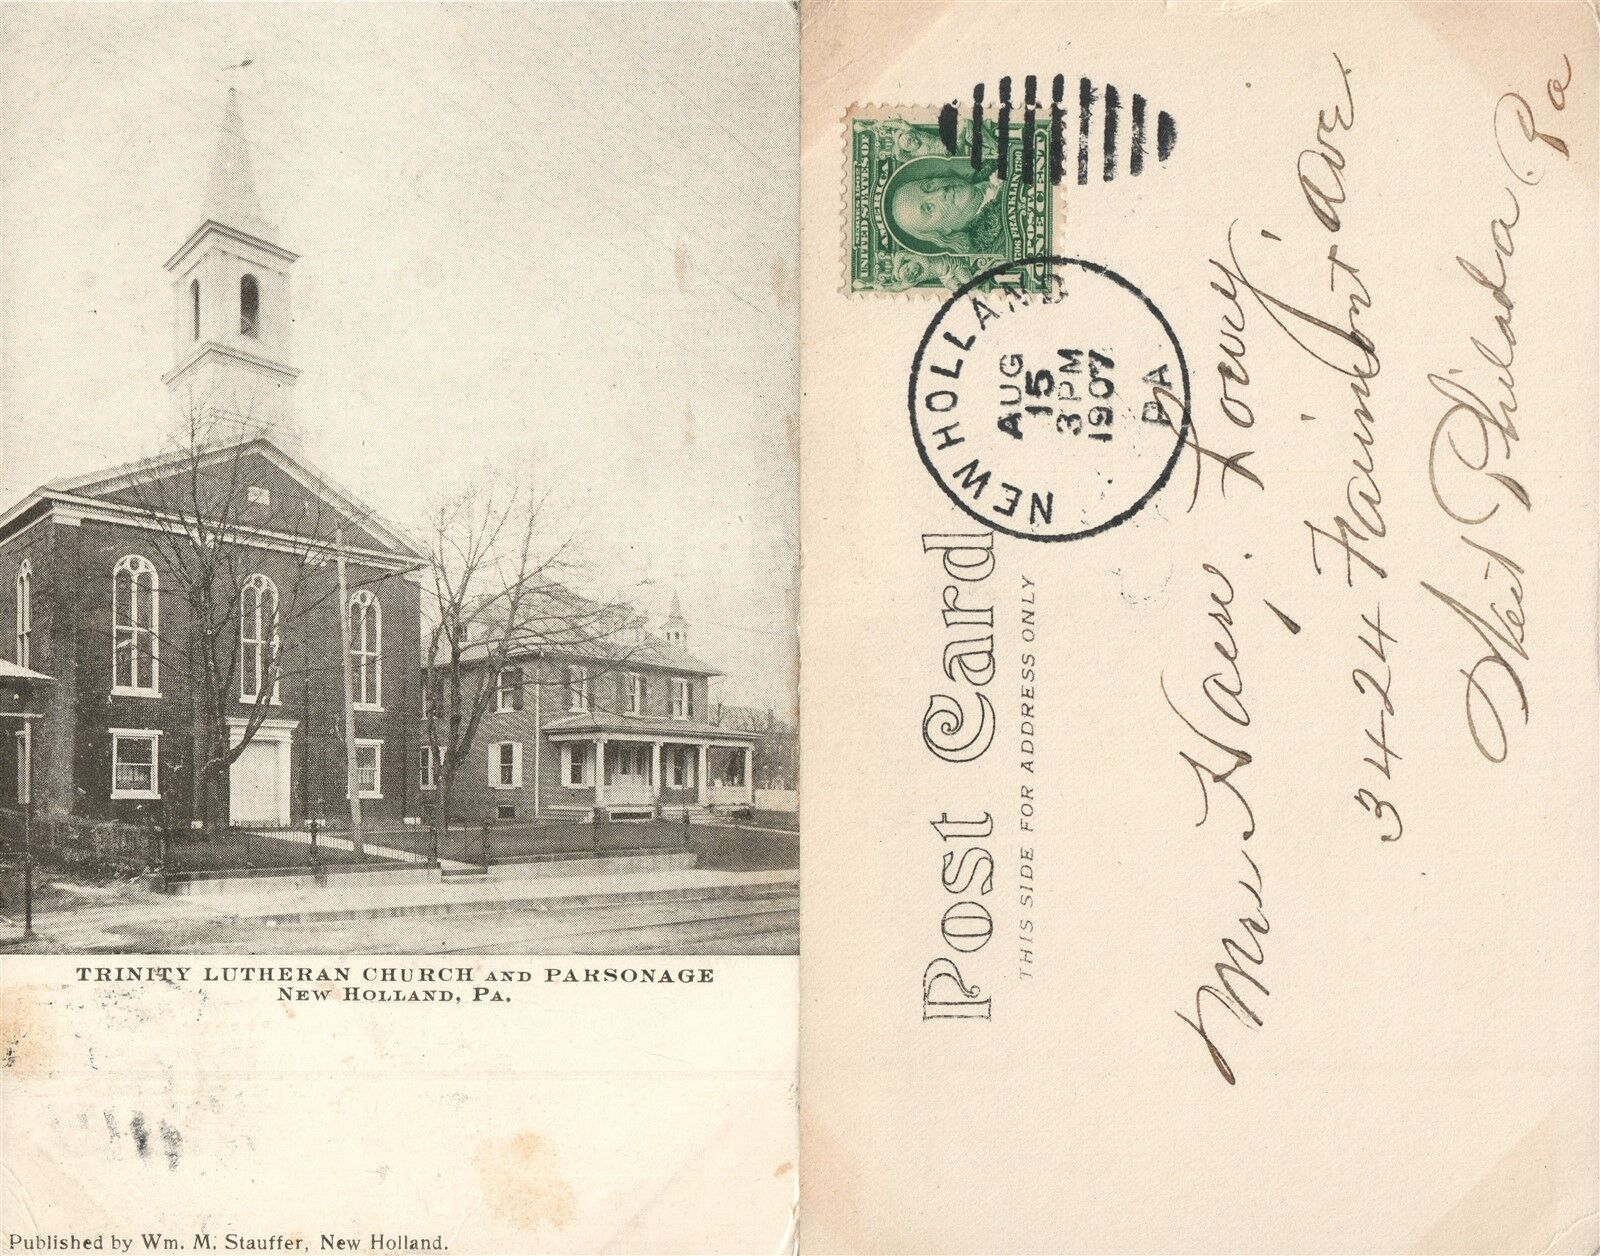 TRINITY LUTHERAN CHURCH AND PARSONAGE
NEW HOLLAND, PA.
Published by Wm. M. Stauffer, New Holland.
Post Card
THIS SIDE FOR ADDRESS ONLY
UNITED STATES OF
AMERICA
1706 FRANKLIN 1790
POSTAGE
ONE CENT
NEW HOLLAND
AUG
15
3 PM
1907
PA
Mrs Lowry
3424 Fairmont Ave.
West Philada. Pa